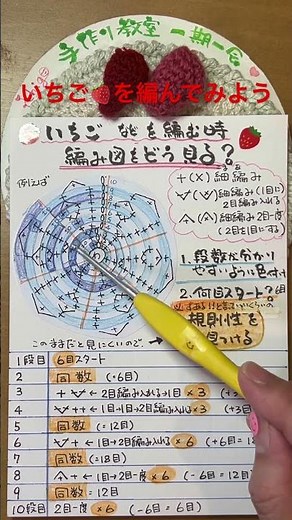 手作り教室 一期一会
いちご🍓を編んでみよう
いちご などを編む時
編み図をどう見る?
例えば
+(×)細編み
細編み(1目に
2目編み入れる)
細編み2目一度
(2目を1目にする)
1.段数が分かり
やすいように色付け
2.何目スタート? 6目
規則性を
見つける
このままだと見にくいので→
1段目 6目スタート
2 同数 (=6目)
3 ←2目編み入れる→1目×3
4 ←1目→1目→2目編み入れる×3 (+3目
5 同数 (=12目)
6 ←1目→2目編み入れる×6 (+6目=18
7 同数 (=18目)
8 ←1目→2目一度×6 (-6目=12目)
9 同数 =12目
10段目 2目一度×6 (-6目=6目)